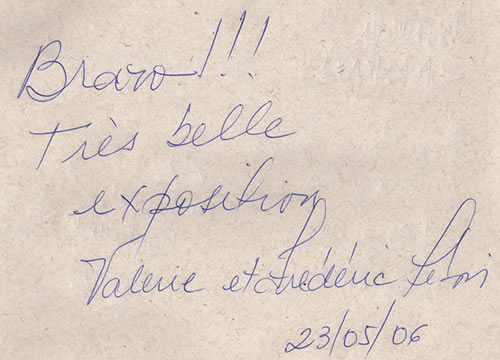 Bravo!!!
Très belle
exposition
Valerie et Frédéric
23/05/06